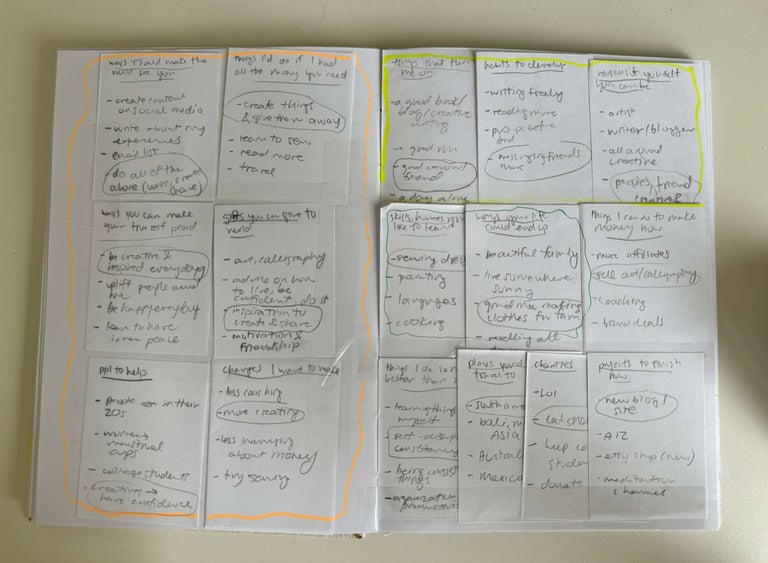 ways I could make the
world for you
- create content
on social media
- write about my
experiences
- email list
- do all of the
above (write, create
share)
things I'd do if I had
all the money you need
- create things
& give them away
- learn to sew
- read more
- travel
ways you can make
your true self proud
- be creative &
inspired everyday
- uplift people around
me
- be happy everyday
- learn to have
inner peace
gifts you can give to
world
- art, calligraphy
- advice on how
to live, be
confident, do it
- inspiration to
create & share
- motivation &
friendship
ppl to help
- people in their
20s
- women →
menstrual
cups
- college students
- creating →
have confidence
changes I want to make
- less coaching
- more creating
- less worrying
about money
- try sewing
things that turn
me on
- a good book/
blog/creative
writing
- good run
- good convo w/
friend
- a day alone
habits to develop
- writing freely
- reading more
- push ups before
bed
- messaging friends
more
reasons yourself
you can be
- artist
- writer/blogger
- all around
creative
- peoples friend
skills, hobbies you'd
like to learn
- sewing
- painting
- languages
- cooking
ways your life
could end up
- beautiful family
- live somewhere
sunny
- good mix making
clothes for fam
- selling art
things I can do to make
money now
- more affiliates
- sell art/calligraphy
- coaching
- brand deals
things I do so
better than
- learning things
myself
- self discip
consistency
- being consist
things
- organization
productiv
places you'd
travel to
- south am
- bali,
ASIA
- Austral
- Mexico
charities
- LOI
- cat
- help co
studen
- donate
projects to finish
now
- new blog/
site
- A12
- etsy shop (new)
- meditation
channel